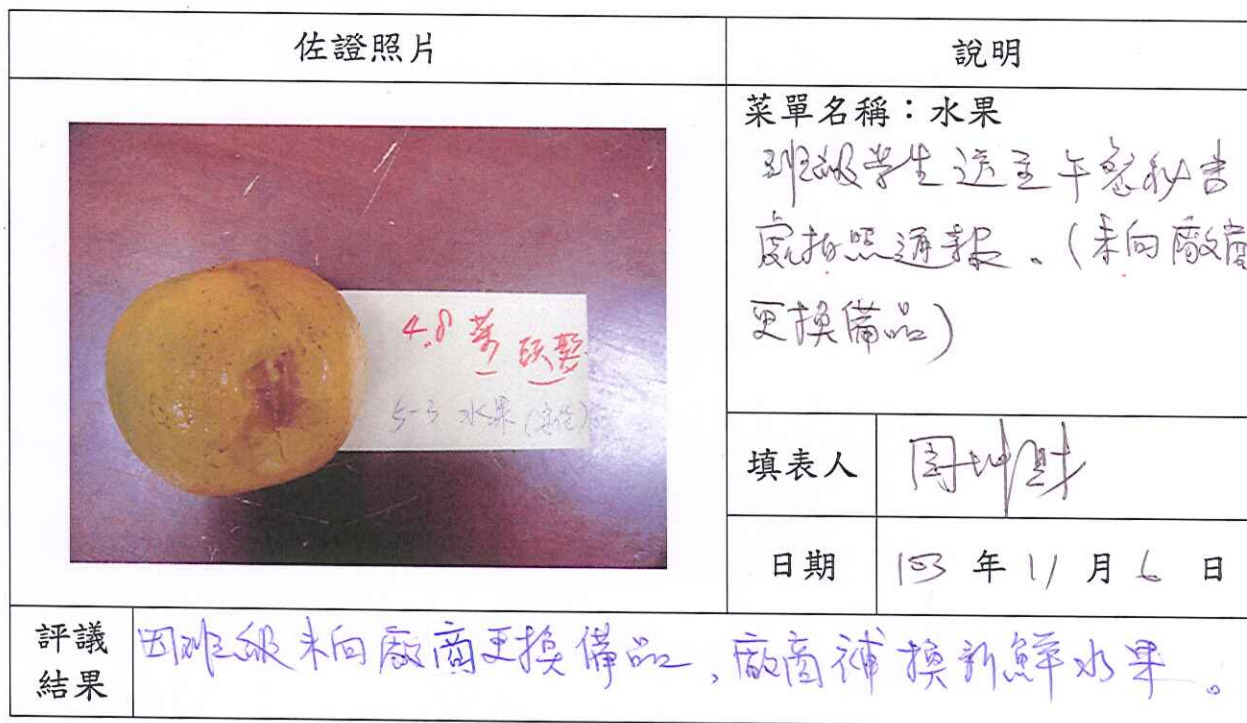 佐證照片
說明
菜單名稱：水果
班級學生送至午餐秘書
處拍照通報。(未向廠商
更換備品)
4.8
5-3 水果
填表人
日期 103 年 11 月 6 日
評議結果
因班級未向廠商更換備品，廠商補換新鮮水果。